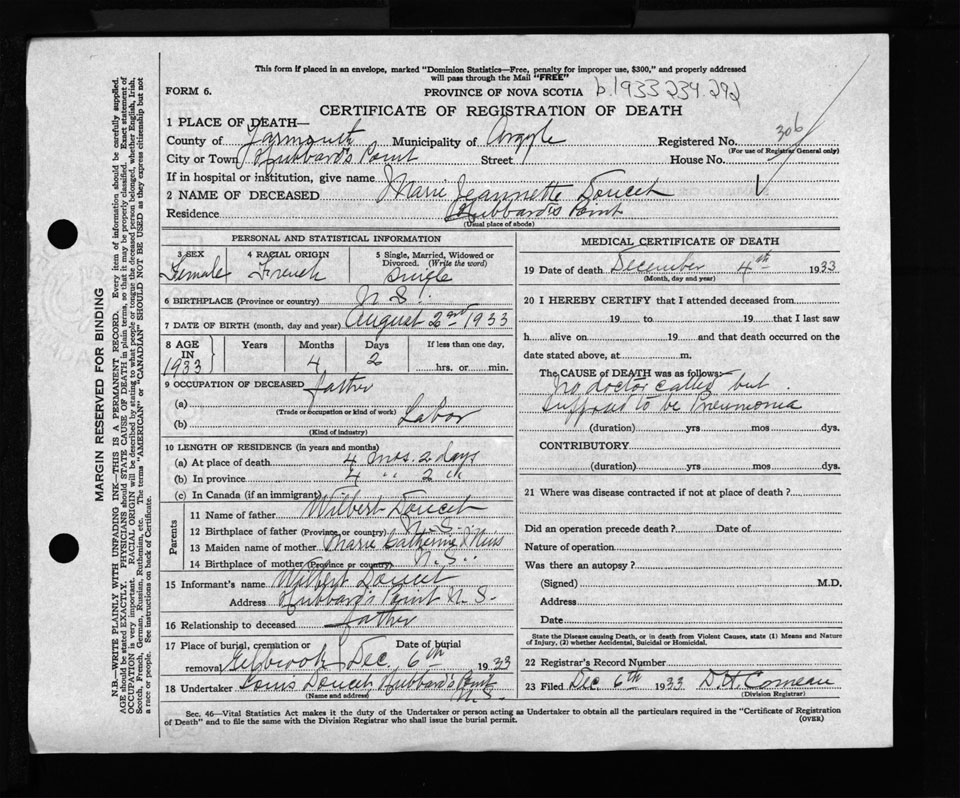 This form if placed in an envelope, marked "Dominion Statistics—Free, penalty for improper use, $300," and properly addressed
will pass through the Mail "FREE"
FORM 6.
PROVINCE OF NOVA SCOTIA
b.1933 234.292
CERTIFICATE OF REGISTRATION OF DEATH
1 PLACE OF DEATH—
County of Yarmouth Municipality of Argyle Registered No. 306
(For use of Registrar General only)
City or Town Hubbard's Point Street House No.
If in hospital or institution, give name
2 NAME OF DECEASED Marie Jeannette Doucet
Residence Hubbard's Point
(Usual place of abode)
PERSONAL AND STATISTICAL INFORMATION
3 SEX Female
4 RACIAL ORIGIN French
5 Single, Married, Widowed or Divorced. (Write the word) Single
6 BIRTHPLACE (Province or country) N.S.
7 DATE OF BIRTH (month, day and year) August 2nd 1933
8 AGE IN 1933 Years Months 4 Days 2 If less than one day, hrs. or min.
9 OCCUPATION OF DECEASED father
(a)
(Trade or occupation or kind of work)
(b) Labor
(Kind of industry)
10 LENGTH OF RESIDENCE (in years and months)
(a) At place of death 4 mos. 2 days
(b) In province 4 " 2 "
(c) In Canada (if an immigrant)
Parents
11 Name of father Wilbert Doucet
12 Birthplace of father (Province or country) N.S.
13 Maiden name of mother Marie Catherine
14 Birthplace of mother (Province or country) N.S.
15 Informant's name Wilbert Doucet
Address Hubbard's Point N.S.
16 Relationship to deceased father
17 Place of burial, cremation or removal Date of burial Dec. 6th 1933
18 Undertaker Louis Doucet, Hubbard's Point N.S.
(Name and address)
MEDICAL CERTIFICATE OF DEATH
19 Date of death December 4th 1933
(Month, day and year)
20 I HEREBY CERTIFY that I attended deceased from
19 to 19 that I last saw
h alive on 19 and that death occurred on the
date stated above, at m.
The CAUSE of DEATH was as follows:
No doctor called but
suppose to be Pneumonia
(duration) yrs mos dys.
CONTRIBUTORY
(duration) yrs. mos. dys.
21 Where was disease contracted if not at place of death?
Did an operation precede death? Date of
Nature of operation
Was there an autopsy?
(Signed) M.D.
Address
Date
State the Disease causing Death, or in death from Violent Causes, state (1) Means and Nature
of Injury, (2) whether Accidental, Suicidal or Homicidal.
22 Registrar's Record Number
23 Filed Dec 6th 1933 D.H. Comeau
(Division Registrar)
Sec. 46—Vital Statistics Act makes it the duty of the Undertaker or person acting as Undertaker to obtain all the particulars required in the "Certificate of Registration
of Death" and to file the same with the Division Registrar who shall issue the burial permit.
(OVER)
MARGIN RESERVED FOR BINDING
N.B.—WRITE PLAINLY WITH UNFADING INK—THIS IS A PERMANENT RECORD. Every item of information should be carefully supplied.
AGE should be stated EXACTLY. PHYSICIANS should STATE CAUSE OF DEATH in plain terms, so that it may be properly classified. Exact statement of
OCCUPATION is very important. RACIAL ORIGIN will be described by stating to what people or tongue the deceased person belonged, whether English, Irish,
Scotch, French, German, Russian, Ruthenian, etc. The terms "AMERICAN" or "CANADIAN" SHOULD NOT BE USED as they express citizenship but not
a race or people. See instructions on back of Certificate.